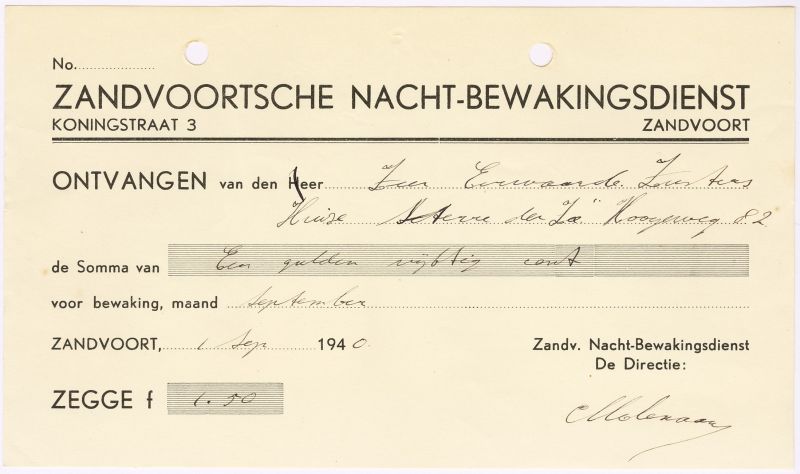 No.
ZANDVOORTSCHE NACHT-BEWAKINGSDIENST
KONINGSTRAAT 3 ZANDVOORT
ONTVANGEN van den Heer Zeer Eerwaarde Zusters
Huize "Sterre der Zee" Hoogeweg 82
de Somma van Een gulden vijftig cent
voor bewaking, maand September
ZANDVOORT, 1 Sep 1940.
Zandv. Nacht-Bewakingsdienst
De Directie:
ZEGGE f 1.50
CMolenaar